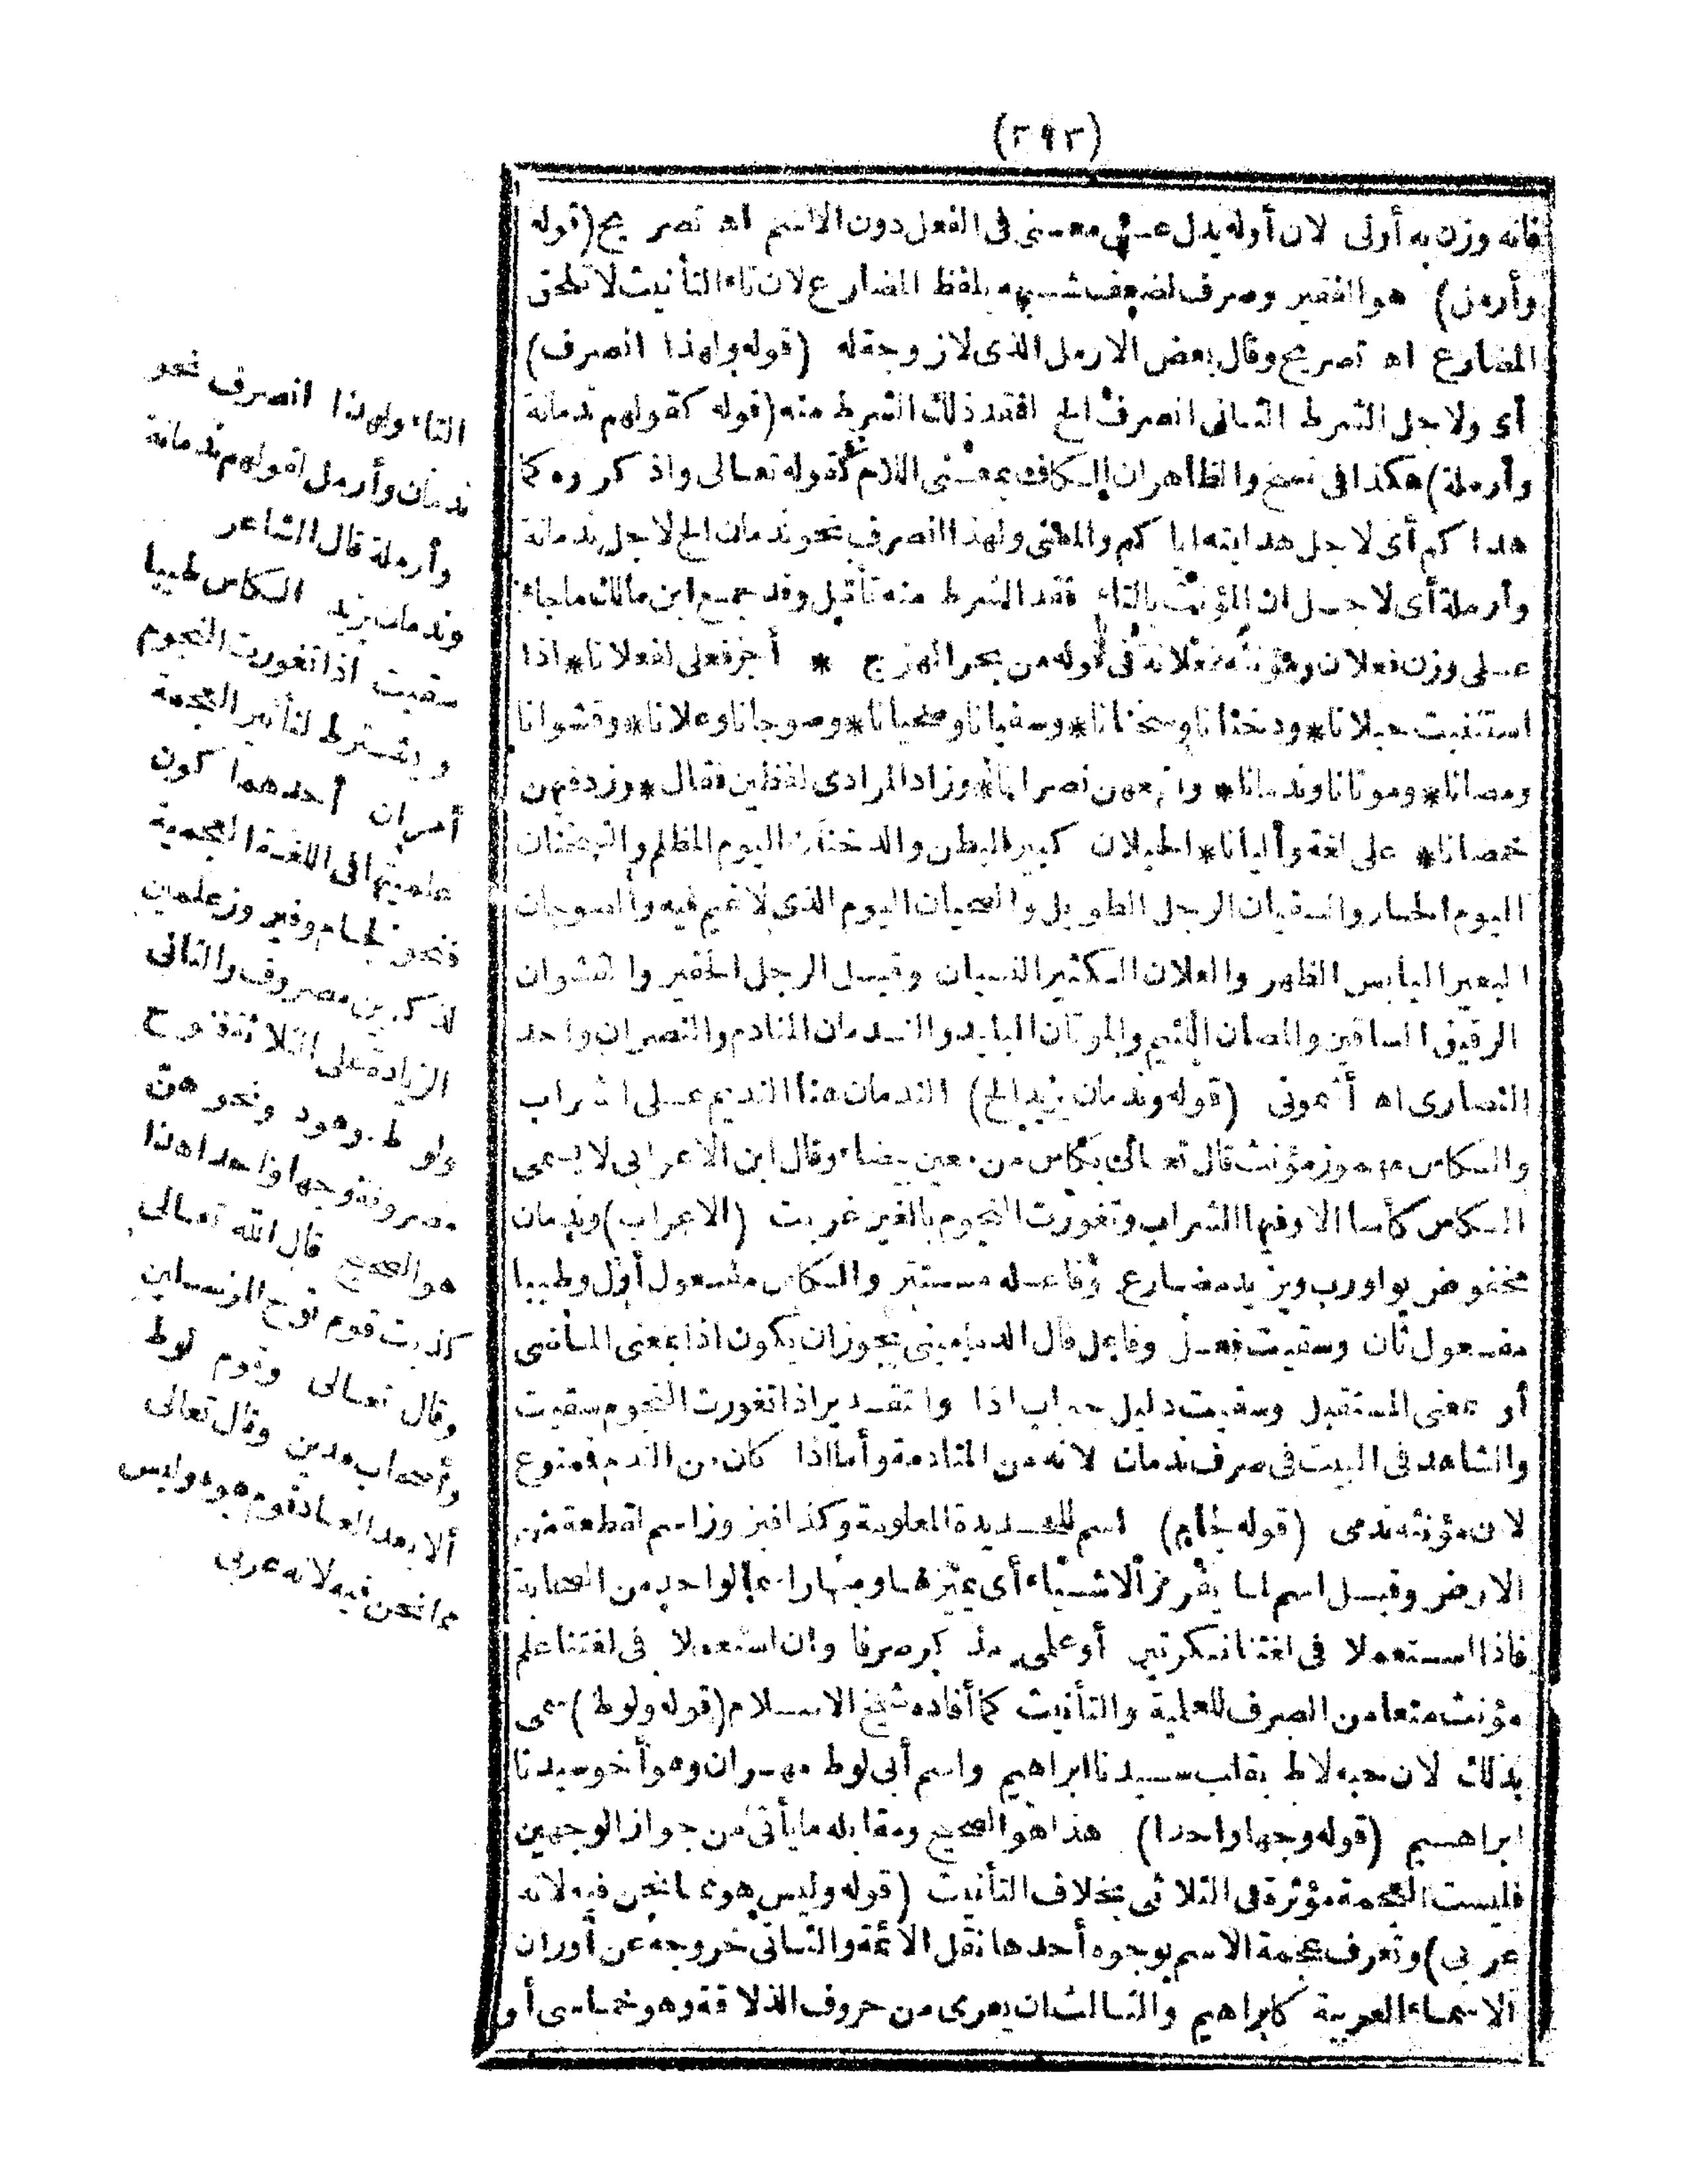 (٢٩٣)
فانه وزن به أولى لان أوله يدل على معنى فى الفعل دون الاسم اه تصريح (قوله
وأرمل) هو الفقير وصرف لضعف شبهه بلفظ المضارع لان تاء التأنيث لا تلحق
المضارع اه تصريح وقال بعض الارمل الذى لا زوجة له (قوله ولهذا انصرف)
أى ولاجل الشرط الثانى انصرف الخ لفقد ذلك الشرط منه (قوله كقولهم ندمانة
وأرملة) هكذا فى نسخ والظاهر ان الكاف بمعنى اللام كقوله تعالى واذكروه كما
هداكم أى لاجل هدايته اياكم والمعنى ولهذا انصرف نحو ندمان الخ لاجل ندمانة
وأرملة أى لاجل ان المؤنث بالتاء فقد الشرط منه تأمل وقد جمع ابن مالك ما جاء
على وزن فعلان ومؤنثه فعلانة فى قوله من بحر الهزج * أجز فعلى لفعلانا * اذا
استثنيت حبلانا * ودخنانا وسخنانا * وسفيانا وضحيانا * وصوجانا وعلانا * وقشوانا
ومصانا * وموتانا وندمانا * واتبعهن نصرانا * وزاد المرادى لفظين فقال * وزد فيهن
خمصانا * على لغة وأليانا * الحبلان كبير البطن والدخنان اليوم المظلم والسخنان
اليوم الحار والسفيان الرجل الطويل والضحيان اليوم الذى لا غيم فيه والصوجان
البعير اليابس الظهر والعلان الكثير النسيان وقيل الرجل الحقير والقشوان
الرقيق الساقين والمصان اللئيم والموتان البليد والندمان المنادم والنصران واحد
النصارى اه أشمونى (قوله وندمان يزيد الخ) الندمان هنا النديم على الشراب
والكاس مهموز مؤنث قال تعالى بكأس من معين بيضاء وقال ابن الاعرابى لا يسمى
الكاس كأسا الا وفيها الشراب وتغورت النجوم بالغين غربت (الاعراب) وندمان
مخفوض بواو رب ويزيد مضارع وفاعله مستتر والكاس مفعول أول وطيبا
مفعول ثان وسقيت فعل وفاعل قال الدمامينى يجوز ان يكون اذا بمعنى الماضى
أو بمعنى المستقبل وسقيت دليل جواب اذا والتقدير اذا تغورت النجوم سقيت
والشاهد فى البيت فى صرف ندمان لانه من المنادمة وأما اذا كان من الندم فممنوع
لان مؤنثه ندمى (قوله لجام) اسم للحديدة المعلومة وكذا فيروز اسم لقطعة من
الارض وقيل اسم لما يفرز الاشياء أى يميزها
فاذا استعملا فى لغتنا نكرتين أو علمى مذكر صرفا وان استعملا فى لغتنا علم
مؤنث منعا من الصرف للعلمية والتأنيث كما أفاده شيخ الاسلام (قوله ولوط) سمى
بذلك لان حبه لاط بقلب سيدنا ابراهيم واسم أبى لوط مهران وهو أخو سيدنا
ابراهيم (قوله وجها واحدا) هذا هو الصحيح ومقابله ما يأتى من جواز الوجهين
فليست العجمة مؤثرة فى الثلاثى بخلاف التأنيث (قوله وليس هو مما نحن فيه لانه
عربى) وتعرف عجمة الاسم بوجوه أحدها نقل الائمة والثانى خروجه عن أوزان
الاسماء العربية كابراهيم والثالث ان يعرى من حروف الذلاقة وهو خماسى أو
التاء ولهذا انصرف نحو
ندمان وأرمل لقولهم ندمانة
وأرملة قال الشاعر
وندمان يزيد الكاس طيبا
سقيت اذا تغورت النجوم
ويشترط لتأثير العجمة
أمران أحدهما كون
علميتها فى اللغة العجمية
فنحو لجام وفيروز علمين
لمذكرين مصروف والثانى
الزيادة على الثلاثة فنوح
ولوط وهود ونحوهن
مصروفة وجها واحدا هذا
هو الصحيح قال الله تعالى
كذبت قوم نوح المرسلين
وقال تعالى وقوم لوط
وأصحاب مدين وقال تعالى
ألا بعدا لعاد قوم هود وليس
مما نحن فيه لانه عربى